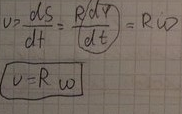 υ = dS/dt = Rdφ/dt = Rω
υ = R ω